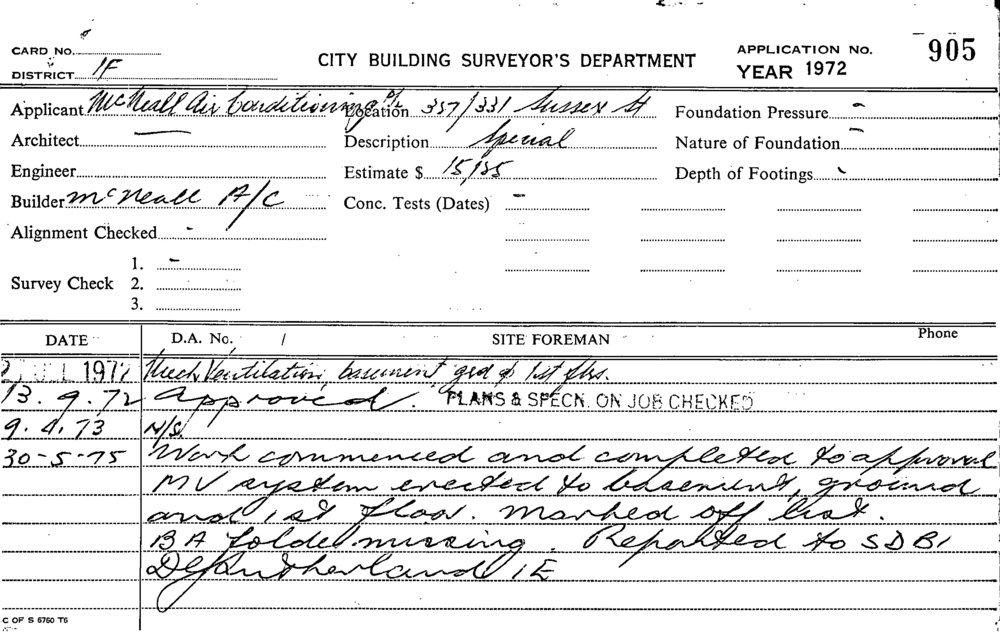 CARD NO.
DISTRICT 1F
CITY BUILDING SURVEYOR'S DEPARTMENT
APPLICATION NO. 905
YEAR 1972
Applicant McNeall Air Conditioning P/L Location 337/331 Sussex St Foundation Pressure -
Architect — Description Special Nature of Foundation -
Engineer Estimate $ 15,185 Depth of Footings -
Builder McNeall A/C Conc. Tests (Dates) -
Alignment Checked -
1. -
Survey Check 2.
3.
DATE D.A. No. / SITE FOREMAN Phone
JUL 1972 Mech Ventilation, basement, grd & 1st flrs.
13.9.72 Approved. PLANS & SPECN. ON JOB CHECKED
9.4.73 N/S.
30-5-75 Work commenced and completed to approval
MV system erected to basement, ground
and 1st floor. Marked off list.
BA folder missing. Reported to SDBI
Sutherland 1E
C OF S 6760 T6